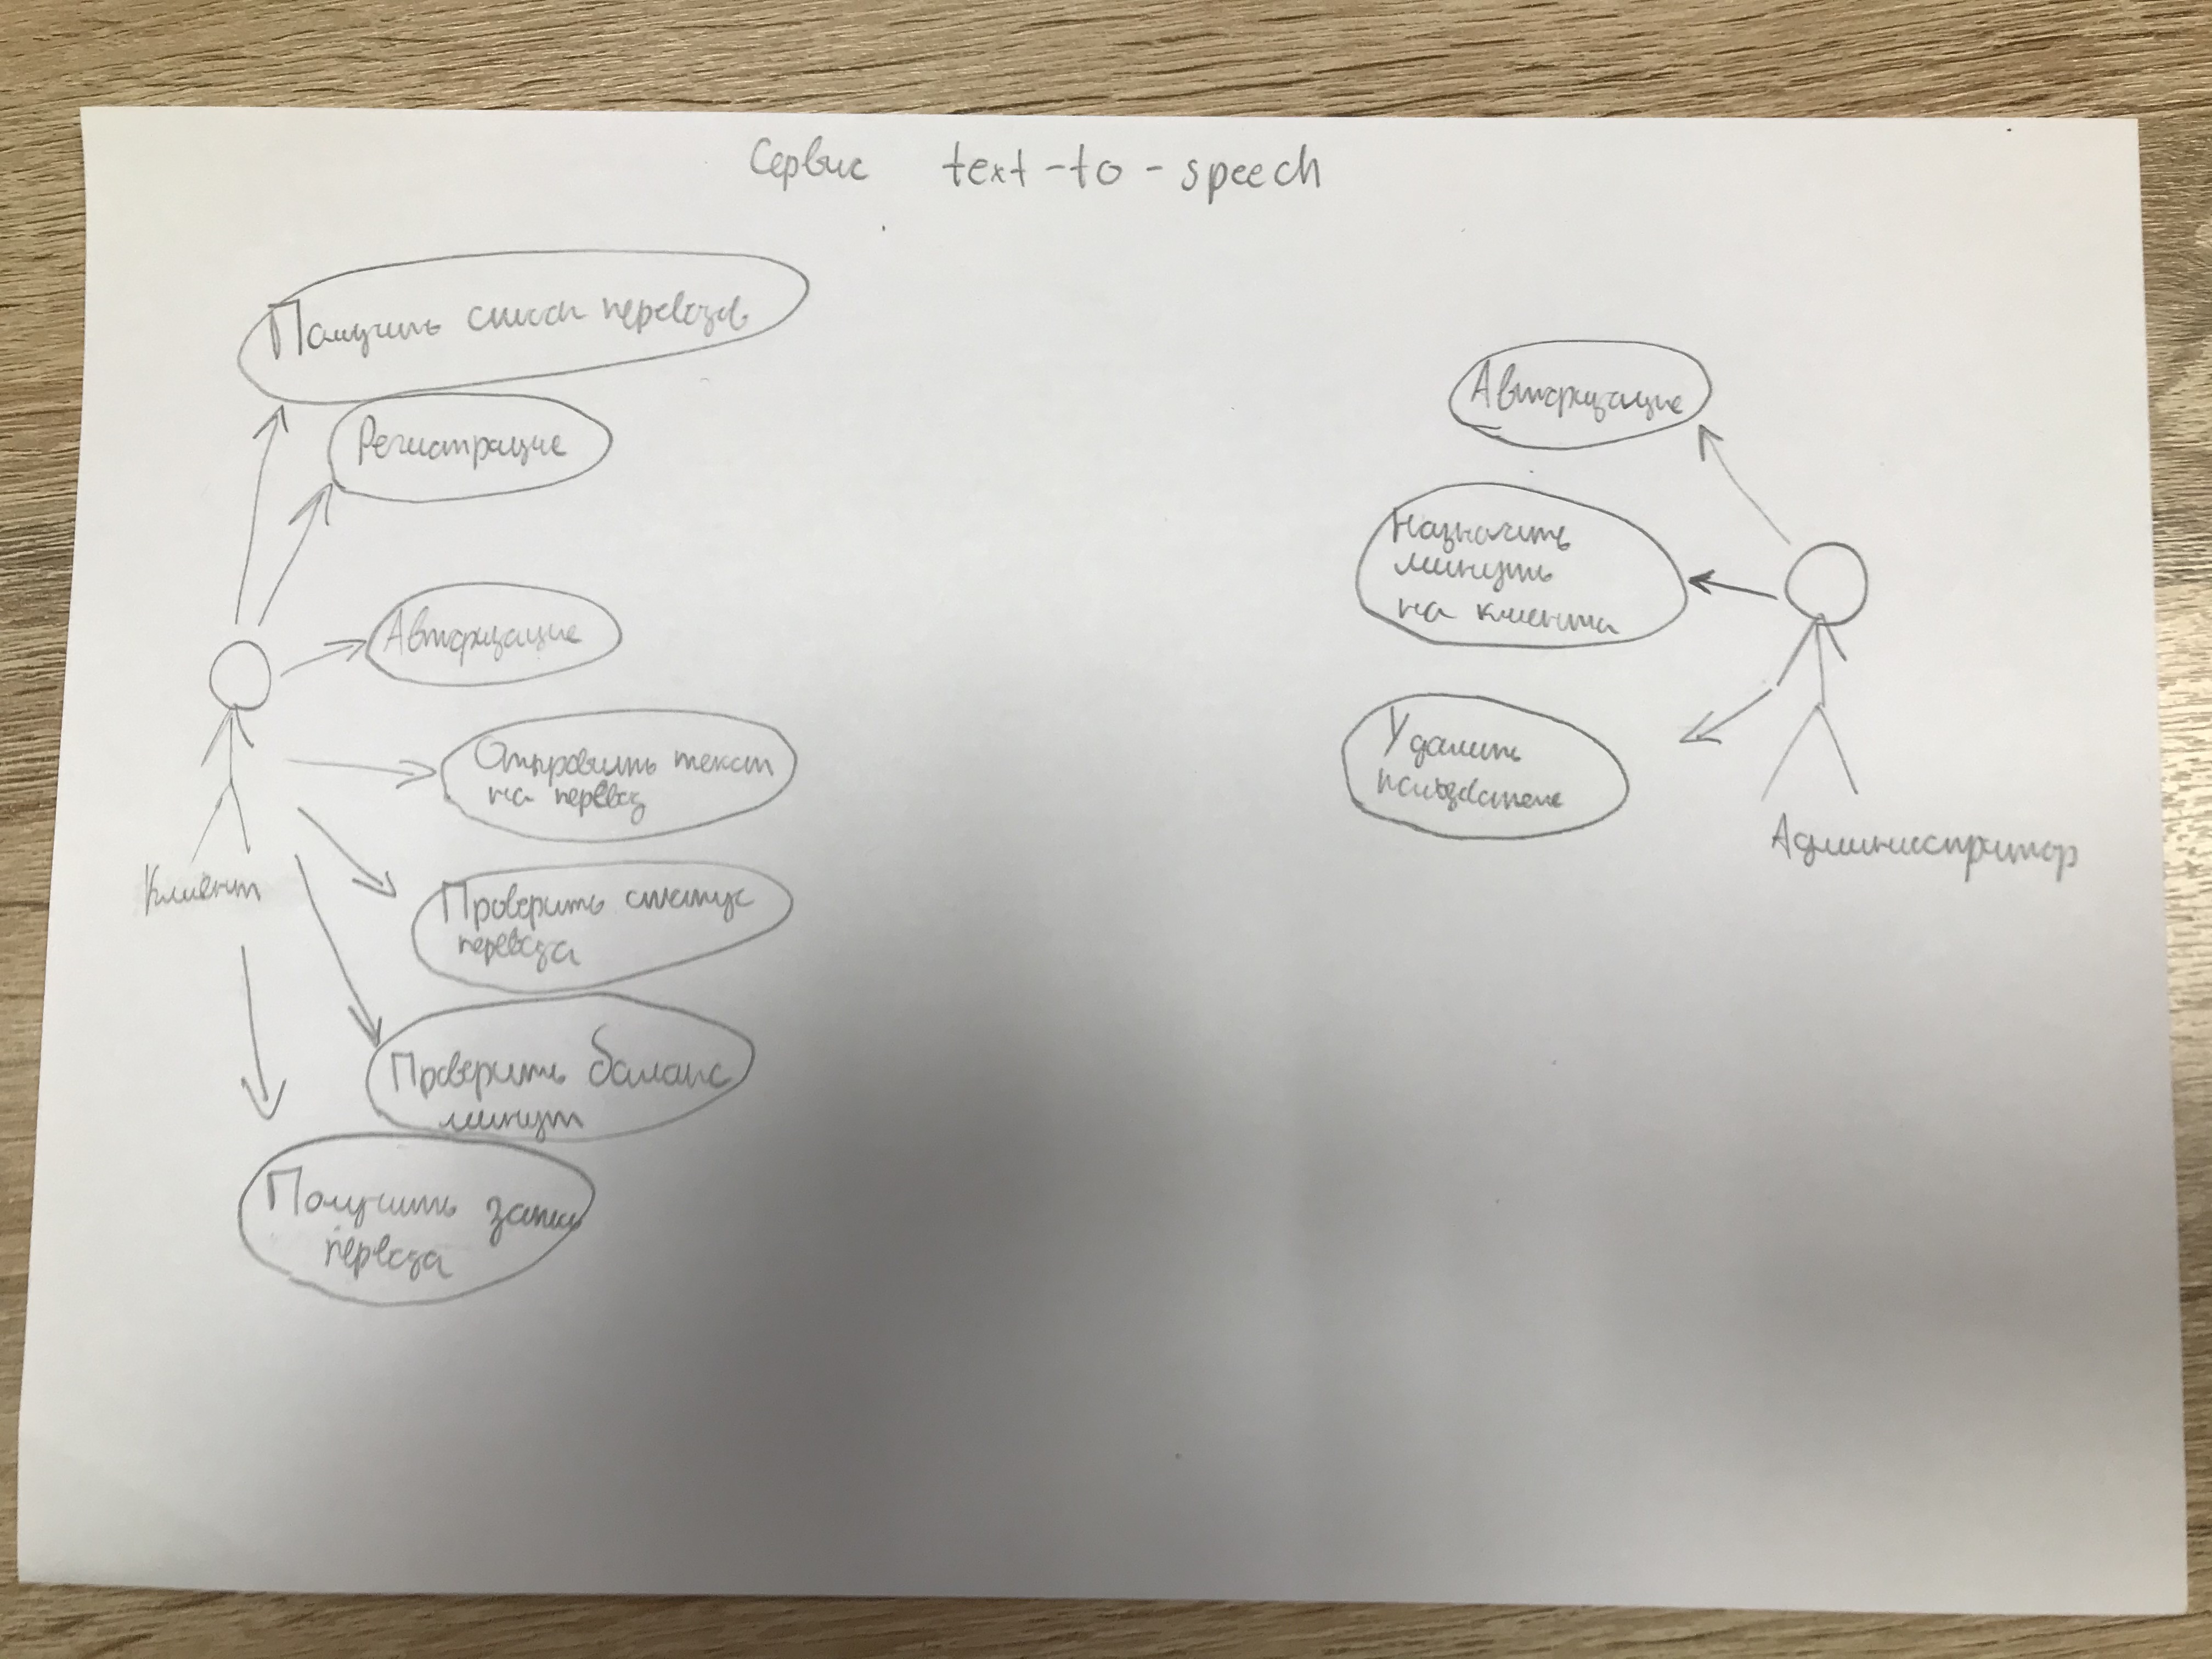 Сервис text-to-speech
Получить список переводов
Регистрация
Авторизация
Отправить текст
на перевод
Проверить статус
перевода
Проверить баланс
минут
Получить запись
перевода
Клиент
Авторизация
Назначить
минуты
на клиента
Удалить
пользователя
Администратор